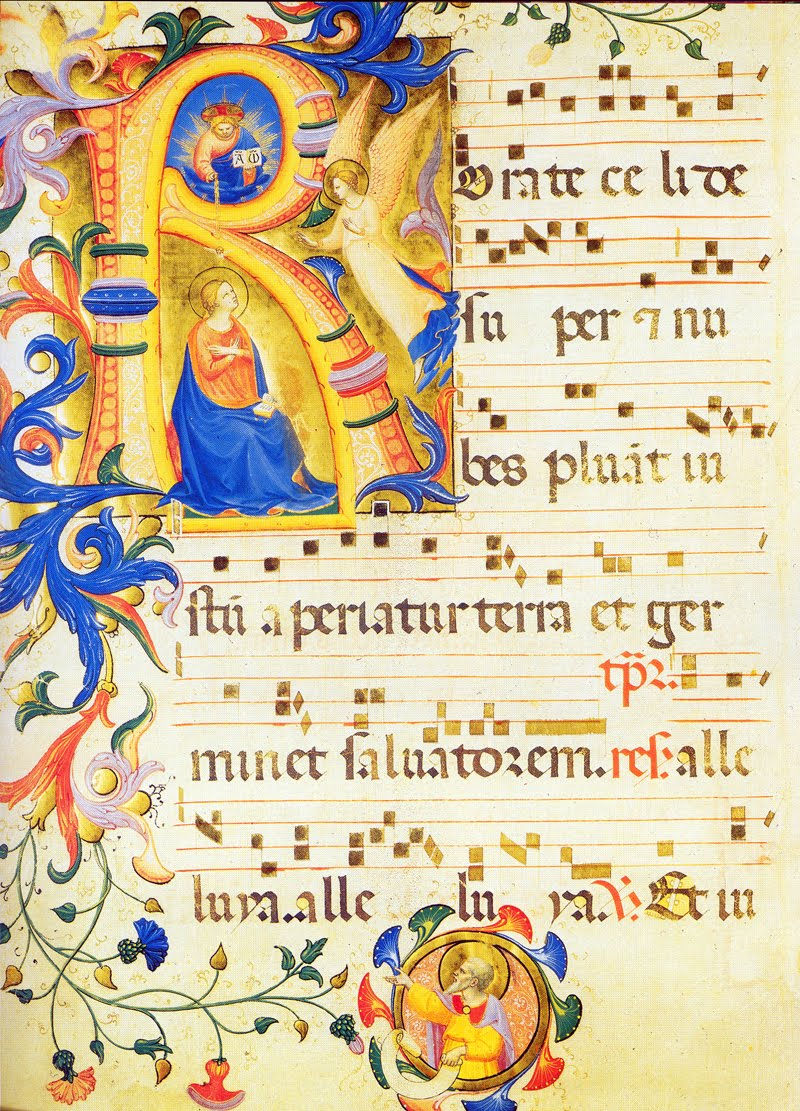 A Ѡ
Rorate celi de
su per ⁊ nu
bes pluāt iu
stū aperiatur terra et ger
tp̄r.
minet saluatorem. res. alle
luya. alle lu ya. ℣. Et in